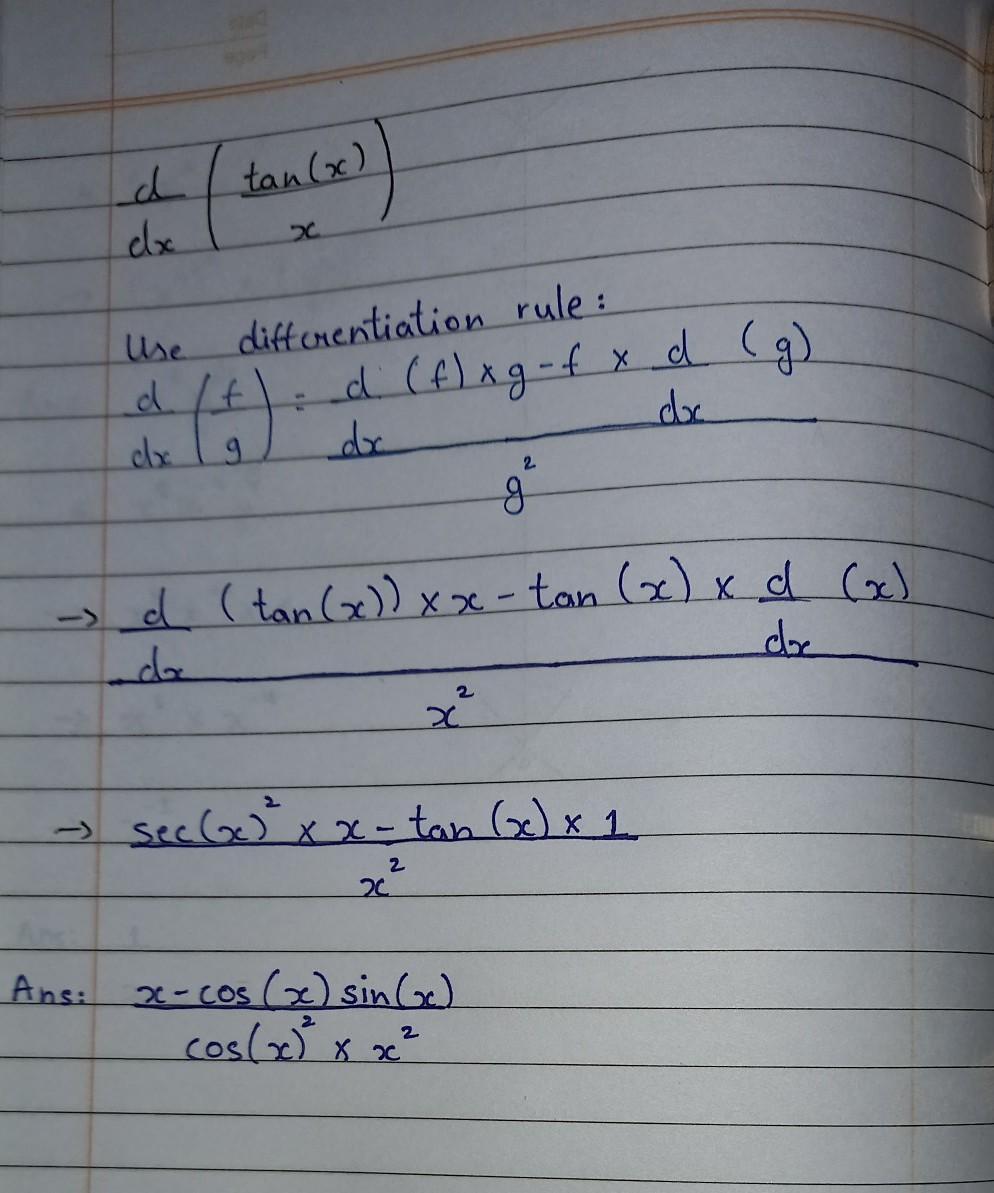 d/dx ( tan(x) / x )
Use differentiation rule:
d/dx ( f/g ) = ( d/dx (f) × g - f × d/dx (g) ) / g²
→ ( d/dx (tan(x)) × x - tan (x) × d/dx (x) ) / x²
→ ( sec(x)² × x - tan (x) × 1 ) / x²
Ans: ( x - cos (x) sin(x) ) / ( cos(x)² × x² )